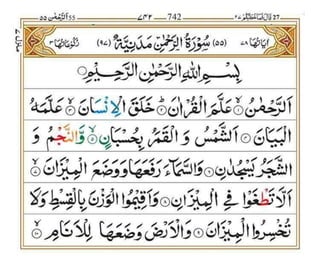 ٥٥ اَلرَّحْمٰن 55 ٧٤٢ 742 قَالَ فَمَا خَطْبُكُمْ ٢٧ 27
اٰيَاتُهَا ٧٨ (٥٥) سُوْرَةُ الرَّحْمٰنِ مَدَنِيَّةٌ (٩٧) رُكُوْعَاتُهَا ٣
بِسْمِ اللّٰهِ الرَّحْمٰنِ الرَّحِيْمِ
اَلرَّحْمٰنُ ۙ عَلَّمَ الْقُرْاٰنَ ؕ خَلَقَ الْاِنْسَانَ ۙ عَلَّمَهُ
الْبَيَانَ ۴ اَلشَّمْسُ وَ الْقَمَرُ بِحُسْبَانٍ ۵ وَّالنَّجْمُ وَ
الشَّجَرُ يَسْجُدٰنِ ۶ وَالسَّمَآءَ رَفَعَهَا وَوَضَعَ الْمِيْزَانَ ۷
اَلَّا تَطْغَوْا فِي الْمِيْزَانِ ۸ وَاَقِيْمُوا الْوَزْنَ بِالْقِسْطِ وَلَا
تُخْسِرُوا الْمِيْزَانَ ۹ وَالْاَرْضَ وَضَعَهَا لِلْاَنَامِ ۱۰